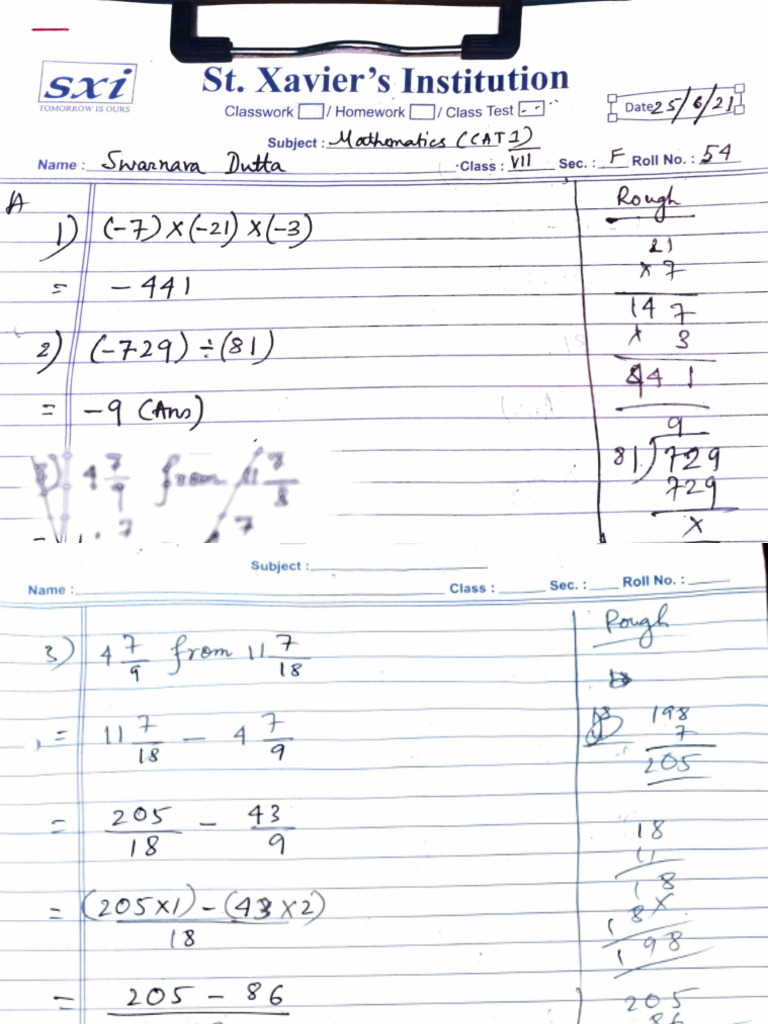 sxi
TOMORROW IS OURS
St. Xavier's Institution
Classwork / Homework / Class Test
Date 25/6/21
Subject : Mathematics (CAT 1)
Name : Swarnava Dutta Class : VII Sec. : F Roll No. : 54
A
Rough
1) (-7) × (-21) × (-3)
21
× 7
= - 441
147
× 3
2) (-729) ÷ (81)
441
= -9 (Ans)
9
81) 729
729
×
4 7/9 from 11 7/18
Subject :
Name : Class : Sec. : Roll No. :
Rough
3) 4 7/9 from 11 7/18
= 11 7/18 - 4 7/9
198
7
205
= 205/18 - 43/9
18
11
18
18×
198
= (205×1) - (43×2)
18
= 205 - 86
205
86